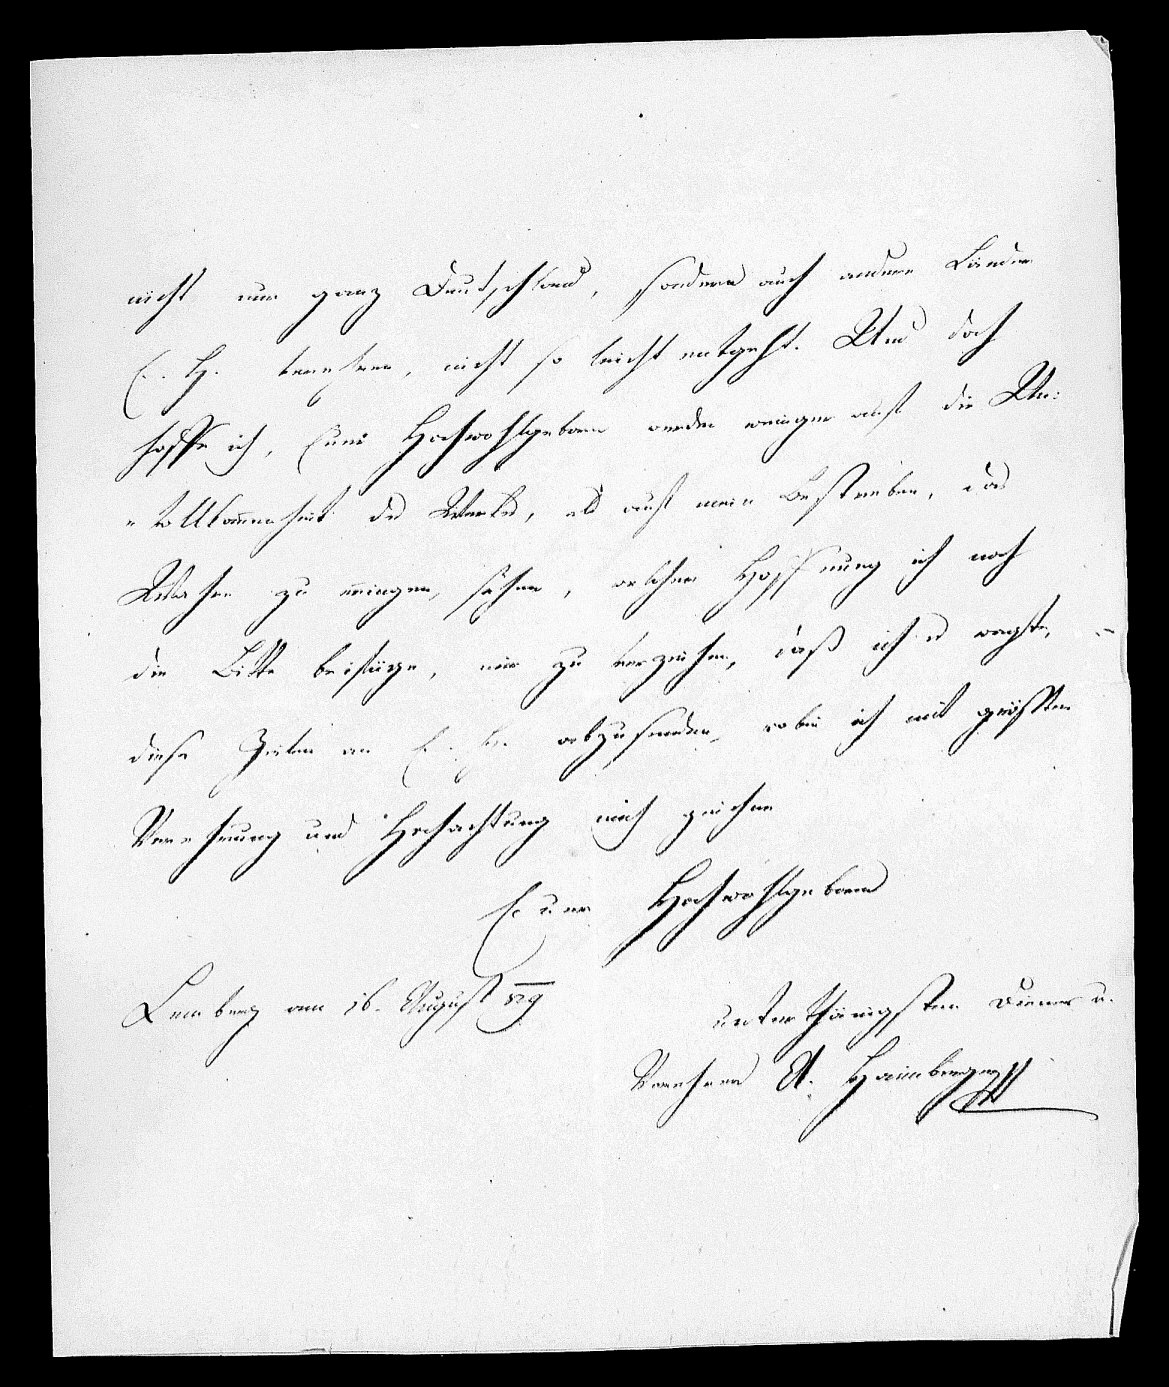 nicht nur ganz Deutschland, sondern auch andere Länder
E. H. verehren, nicht so leicht entgeht. Und doch
hoffe ich, Euer Hochwohlgeboren werden weniger auf die Un:
„vollkommenheit des Werkes, als auf mein Bestreben, das
Wahre zu erringen, sehen, welcher Hoffnung ich noch
die Bitte beifüge, mir zu verzeihen, daß ich es wagte,
diese Zeilen an E. H. abzusenden, wobei ich mit größter
Verehrung und Hochachtung mich zeichne
Euer Hochwohlgeboren
Lemberg am 16. August 829
unterthänigster Diener u.
Verehrer A. Haimberger